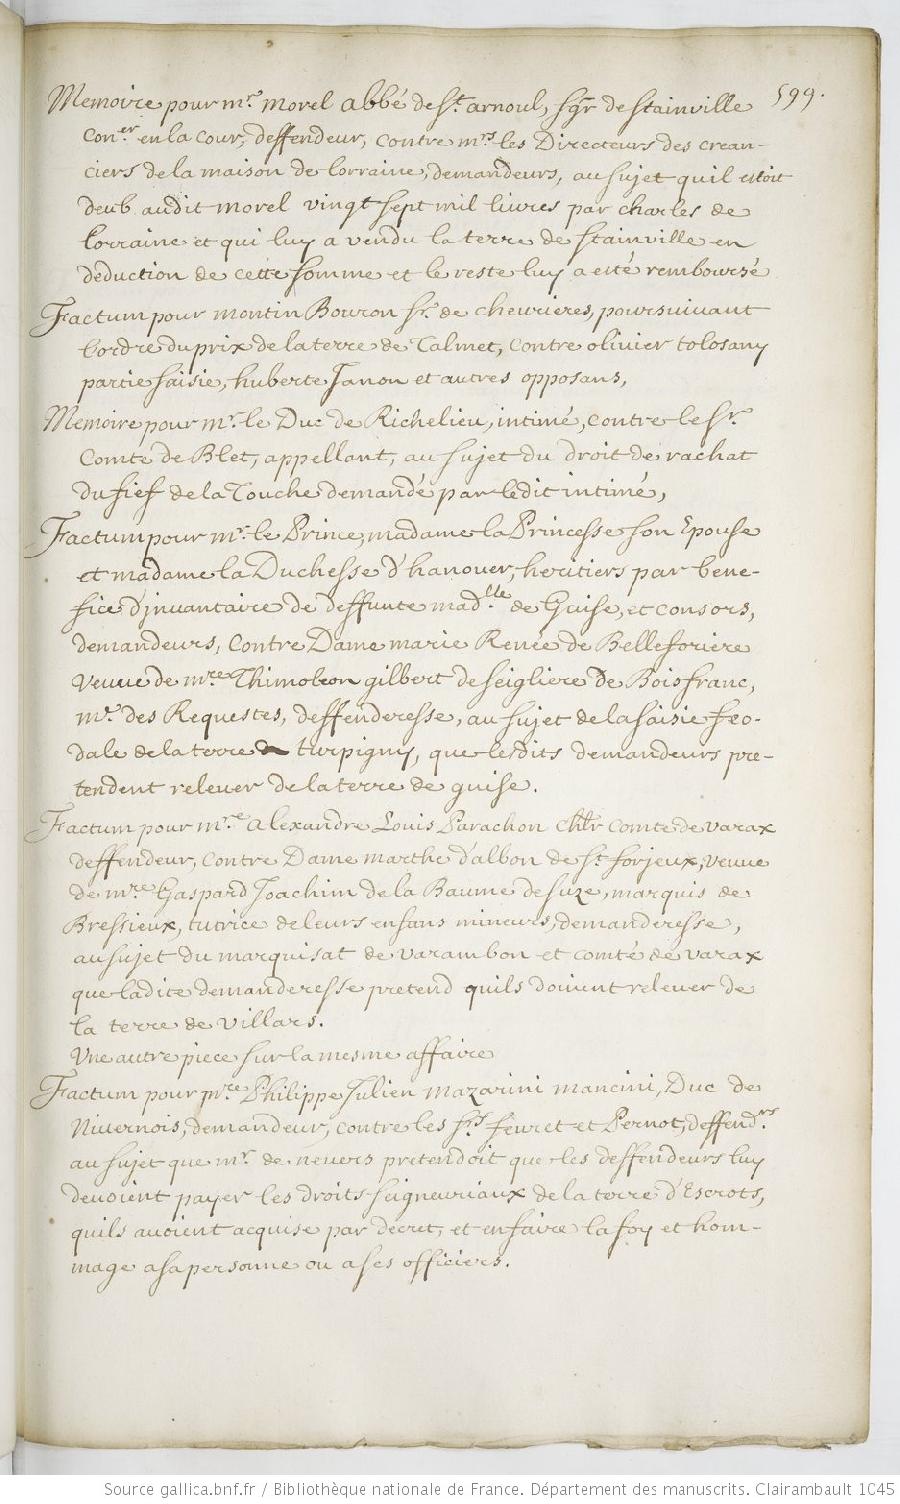 599.
Memoire pour mr. Morel abbé de St. arnoul, sgr de stainville
Coner. en la Cour, deffendeur, contre mrs. les Directeurs des crean-
ciers de la maison de Lorraine, demandeurs, au sujet quil estoit
deub audit morel vingt sept mil livres par charles de
Lorraine et qui luy a vendu la terre de stainville en
deduction de cette somme et le reste luy a esté remboursé
Factum pour montin Bouron sr. de chevrieres, poursuivant
l'ordre du prix de la terre de Talmet, contre olivier tolosany
partie saisie, huberte Janon et autres opposans,
Memoire pour mr. le Duc de Richelieu, intimé, contre le sr.
Comte de Blet, appellant, au sujet du droit de rachat
du fief de la Touche demandé par ledit intimé,
Factum pour mr. le Prince, madame la Princesse son Epouse
et madame la Duchesse d'hanover, heritiers par bene-
fice d'jnvantaire de deffunte madlle. de Guise, et consors,
demandeurs, Contre Dame marie Renée de Belleforiere
veuve de mre Thimoleon gilbert de seigliere de Boisfranc,
me. des Requestes, deffenderesse, au sujet de la saisie feo-
dale de la terre de turpigny, que lesdits demandeurs pre-
tendent relever de la terre de guise.
Factum pour mre. alexandre Louis Parachon chlr comte de varax
deffendeur, contre Dame marthe d'albon de St. forjeux, veuve
de mre. Gaspard Joachim de la Baume de suze, marquis de
Bressieux, tutrice de leurs enfans mineurs, demanderesse,
au sujet du marquisat de varambon et comté de varax
que ladite demanderesse pretend quils doivent relever de
la terre de villars.
Une autre piece sur la mesme affaire
Factum pour mre. Philippe Julien mazarini mancini, Duc de
Nivernois, demandeur, contre les srs. fevret et Pernot, deffendrs.
au sujet que mr. de nevers pretendoit que les deffendeurs luy
devoient payer les droits seigneuriaux de la terre d'Escrots,
quils avoient acquise par decret, et en faire la foy et hom-
mage a sa personne ou a ses officiers.
Source gallica.bnf.fr / Bibliothèque nationale de France. Département des manuscrits. Clairambault 1045